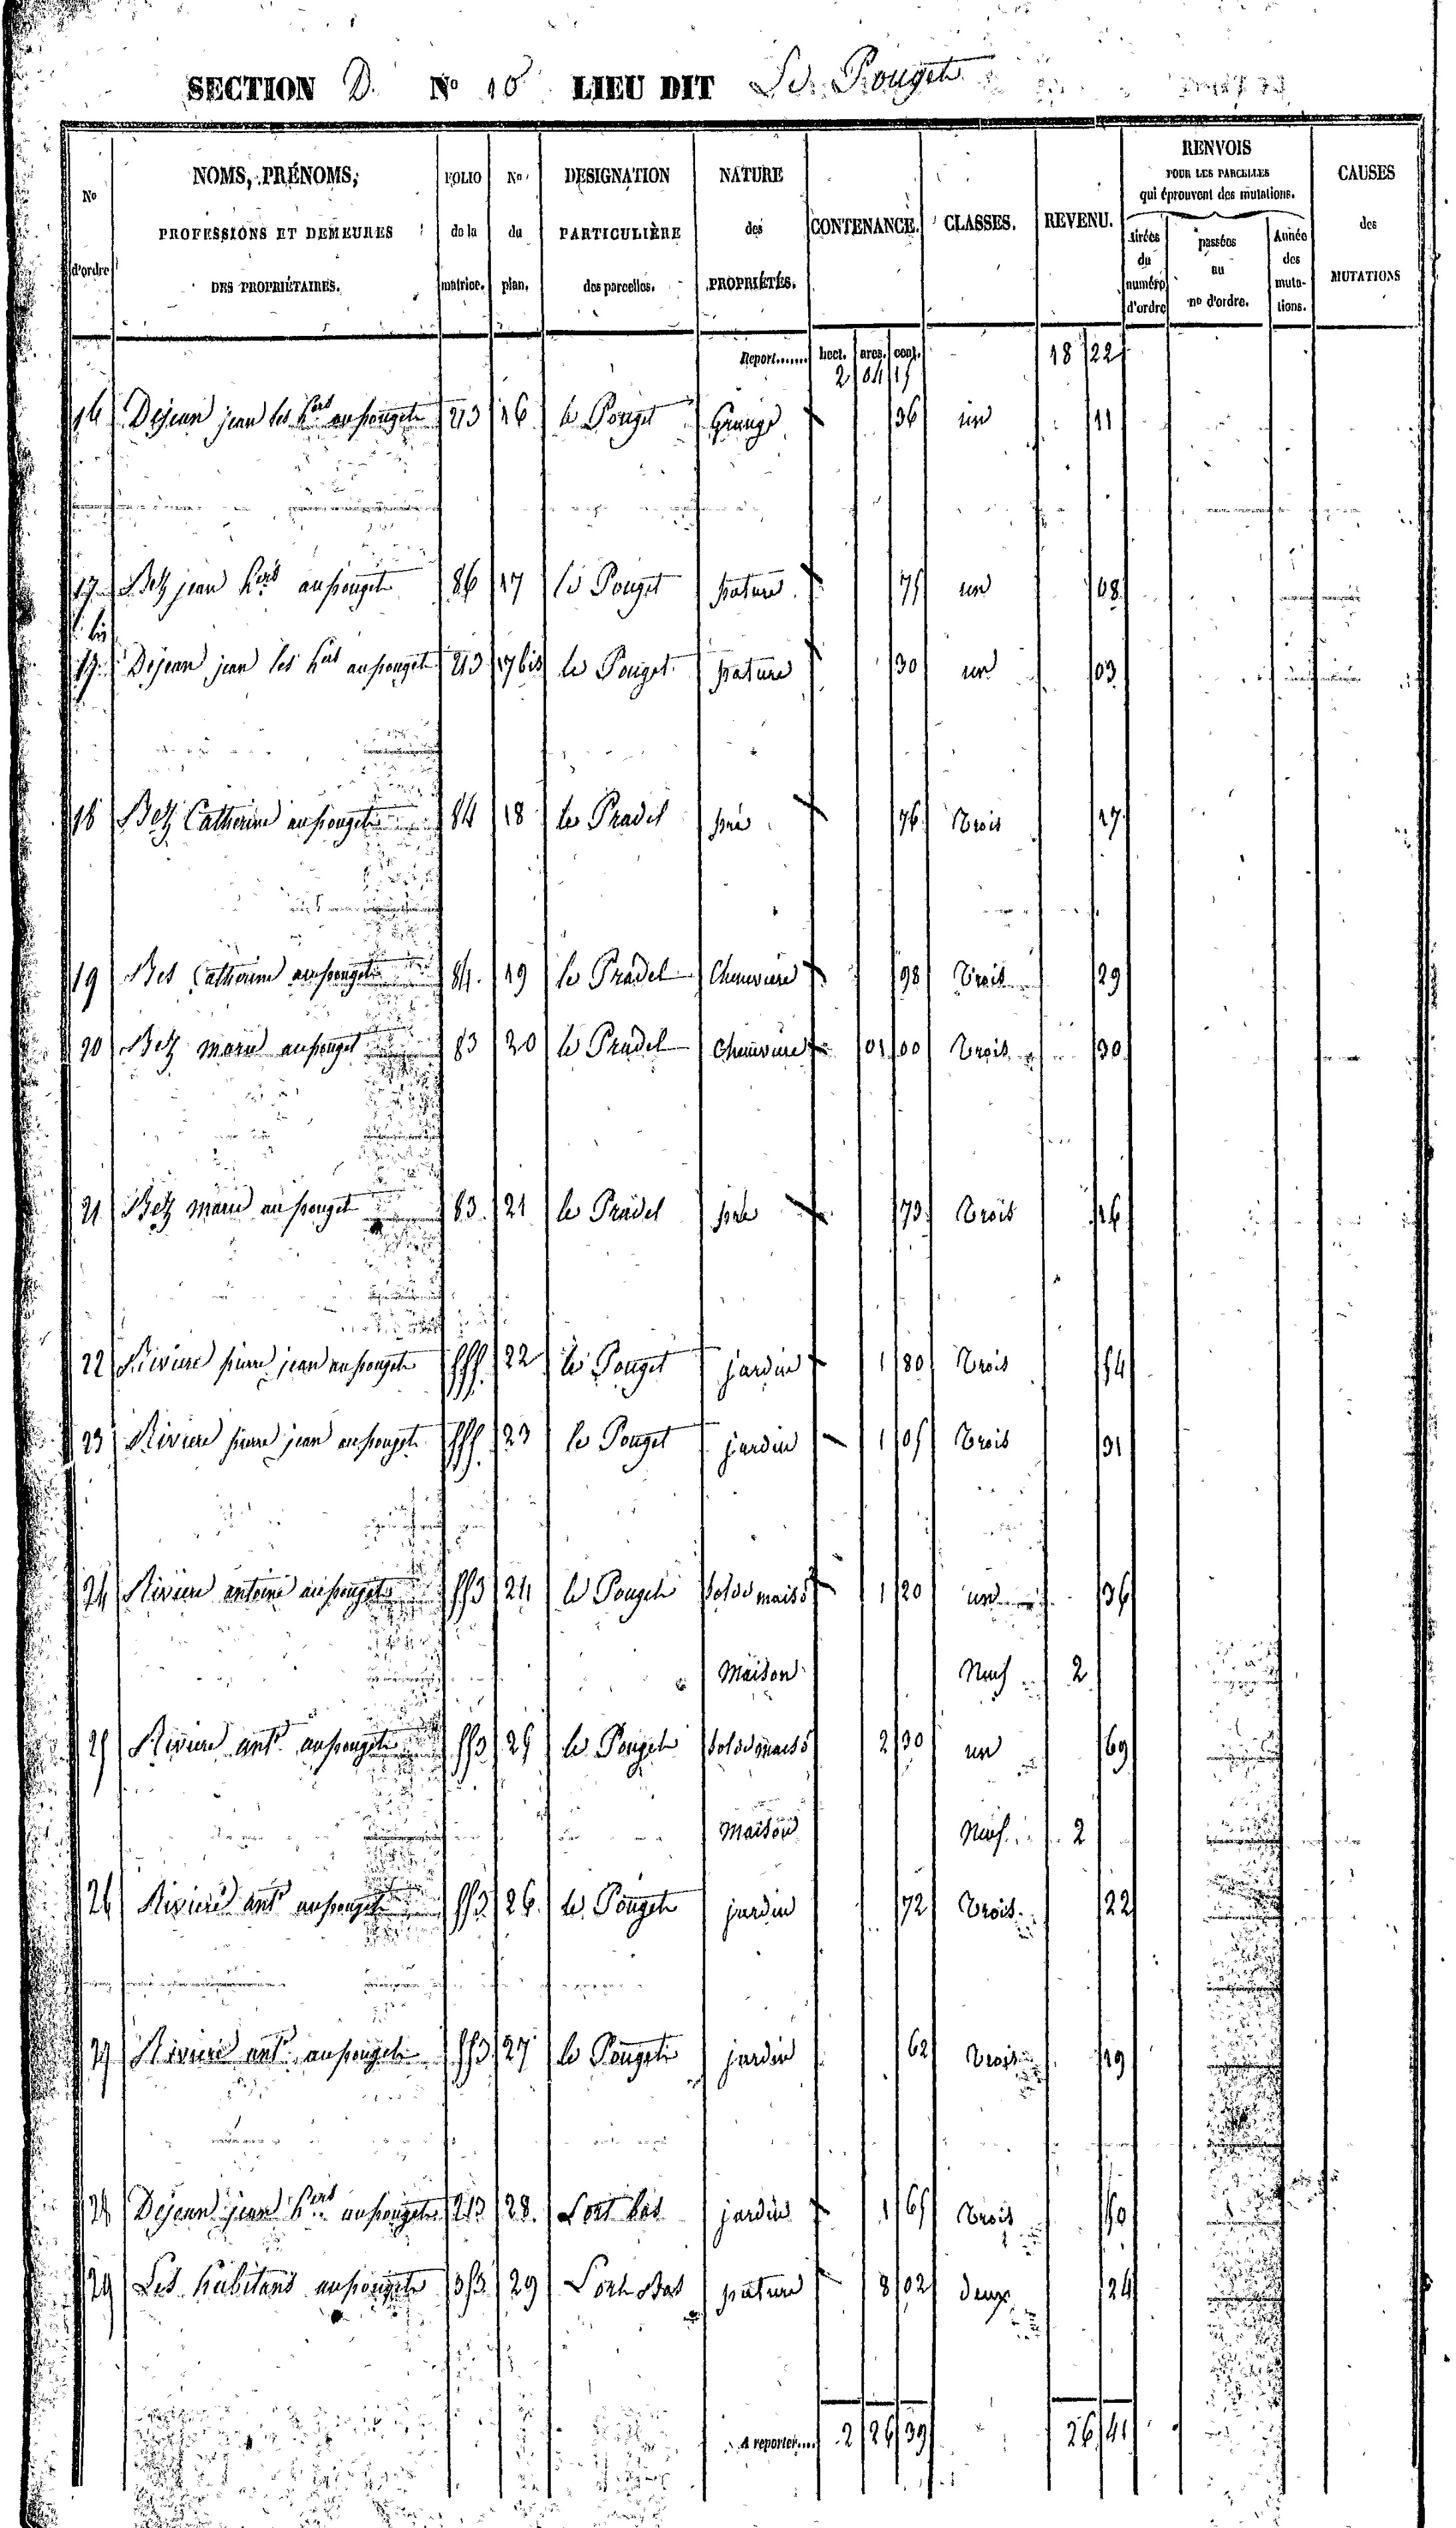 SECTION D. No 10 LIEU DIT Le Pouget
No d'ordre | NOMS, PRÉNOMS, PROFESSIONS ET DEMEURES DES PROPRIÉTAIRES. | FOLIO de la matrice. | No du plan. | DESIGNATION PARTICULIÈRE des parcelles. | NATURE des PROPRIÉTÉS. | CONTENANCE. | CLASSES. | REVENU. | RENVOIS POUR LES PARCELLES qui éprouvent des mutations. | tirées du numéro d'ordre | passées au no d'ordre. | Année des mutations. | CAUSES des MUTATIONS
Report....... hect. ares. cent.
2 04 15 18 22
16 Dejean jean les hers au pouget 213 16 le Pouget Grange 36 un 11
17 Betz jean hers au pouget 86 17 le Pouget pature 75 un 08
17 bis Dejean jean les hers au pouget 213 17 bis le Pouget pature 30 un 03
18 Betz Catherine au pouget 84 18 le Pradel pré 76 Trois 17
19 Bes Catherine au pouget 84 19 le Pradel Cheneviere 98 Trois 29
20 Betz marie au pouget 83 20 le Pradel Cheneviere 01 00 Trois 30
21 Betz marie au pouget 83 21 le Pradel pré 73 Trois 16
22 Riviere pierre jean au pouget 555 22 le Pouget jardin 1 80 Trois 54
23 Riviere pierre jean au pouget 555 23 le Pouget jardin 1 05 Trois 31
24 Riviere antoine au pouget 553 24 le Pouget sol de maison 1 20 un 36
Maison Neuf 2
25 Riviere ant. au pouget 553 25 le Pouget sol de maison 2 30 un 69
Maison Neuf 2
26 Riviere ant. au pouget 553 26 le Pouget jardin 72 Trois 22
27 Riviere ant. au pouget 553 27 le Pouget jardin 62 Trois 19
28 Dejean jean hers au pouget 213 28 Lort bas jardin 1 65 Trois 50
29 Les habitans au pouget 353 29 Lort Bas pature 8 02 deux 24
A reporter.... 2 26 39 26 41